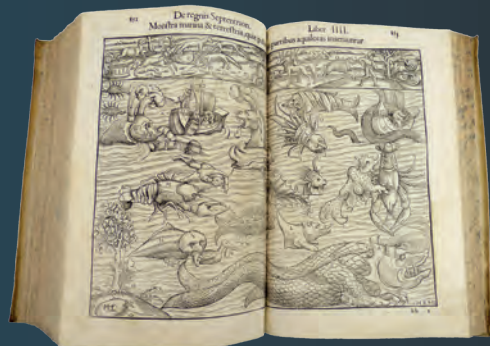 De regnis Septentrion.
Monstra marina & terrestria, quæ
Liber IIII.
partibus aquilonis inueniuntur.